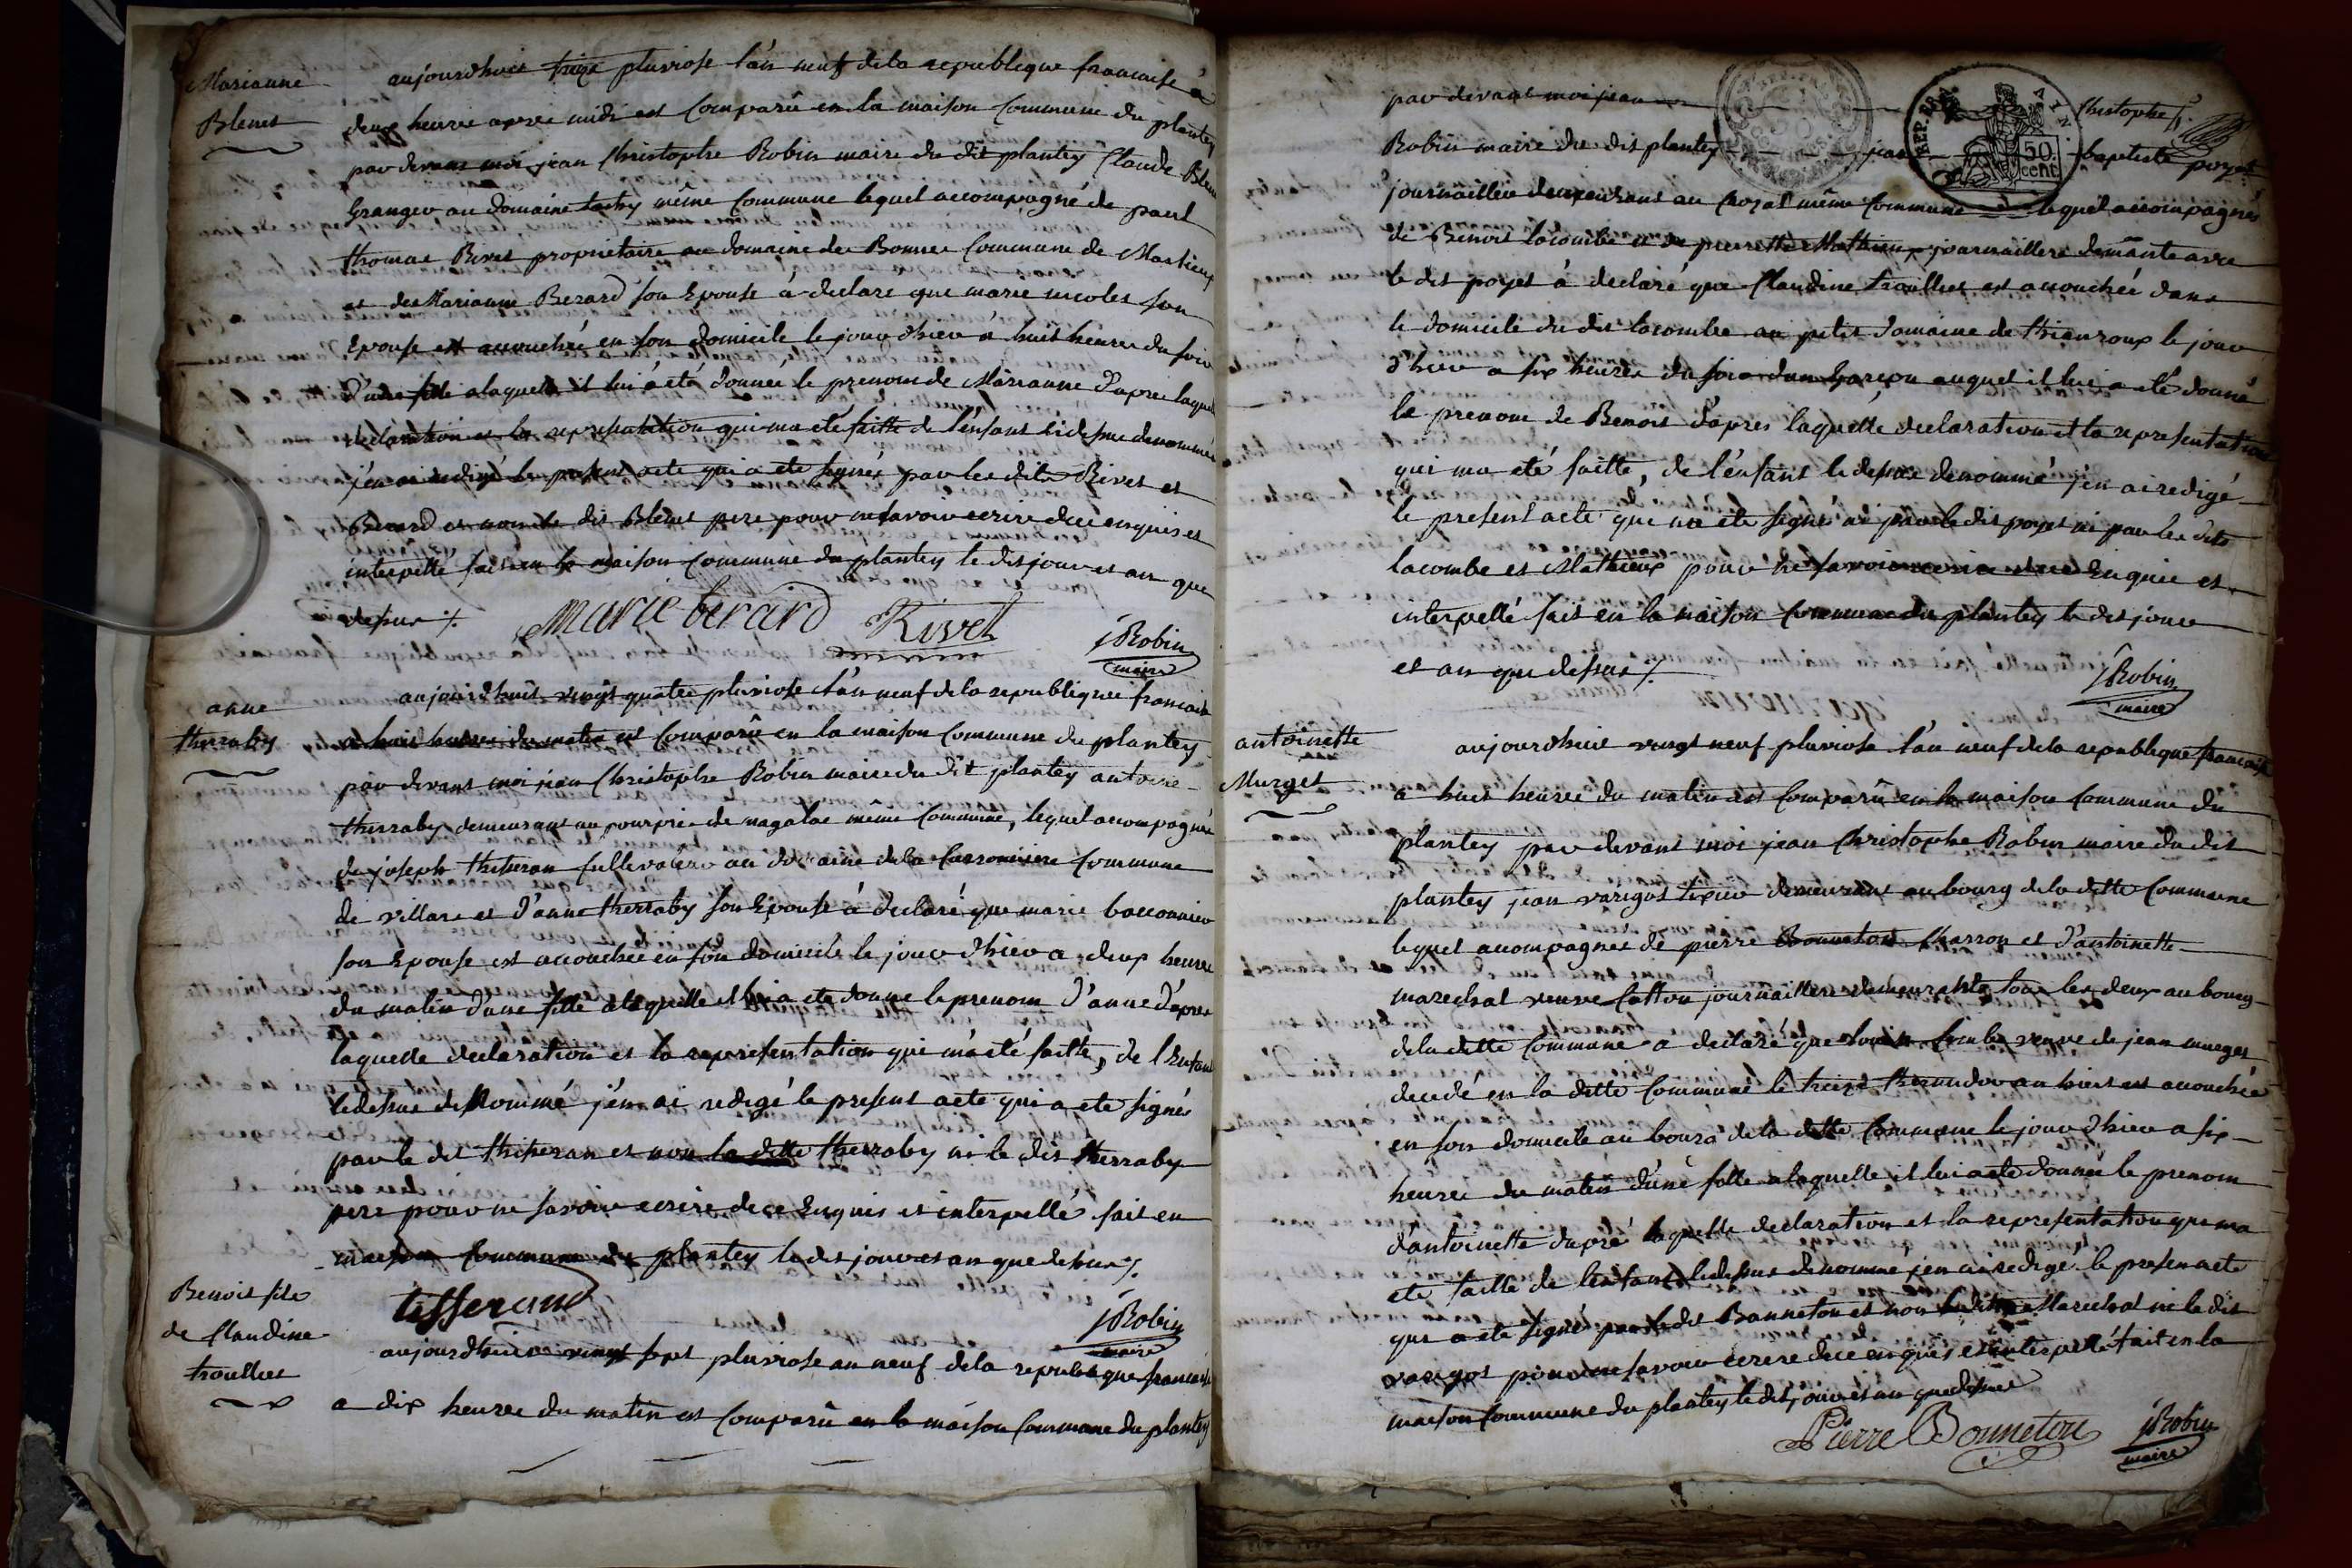 Marianne
Blenet
aujourdhuit treize pluviose l'an neuf de la republique francaise à
deux heures apres midi est Comparû en la maison Commune du plantey
par devant moi jean Christophe Robin maire du dit plantey Claude Blenet
Granger au domaine même Commune lequel accompagné de paul
thomas Rivet proprietaire au domaine de Bonnes Commune de Marlieux
et de Marianne Berard son Epouse à declaré que marie nicolet son
Epouse est accouchée en son domicile le jour d'hier à huit heures du soir
d'une fille a laquelle il lui à été donnée le prenom de Marianne d'apres laquelle
declaration et la representation qui ma eté faitte de l'enfant lidessus denommés
j'en ai redigé le present acte qui a ete signés par les dits Rivet et
Berard et non le dit Blenet pere pour ne savoir ecrire de ce enquis et
interpellé fait en la maison Commune du plantey le dit jour et an que
dessus ./.
marie berard Rivet
jRobin
maire
anne
therraby
aujourdhuit vingt quatre pluviose l'an neuf de la republique francaise
a huit heures du matin est Comparû en la maison Commune du plantey
par devant moi jean Christophe Robin maire du dit plantey antoine
therraby demeurant au pourpris de magalas même Commune, lequel accompagné
de joseph thiseran cultivateur au domaine de la Commune
de villars et d'anne therraby son Epouse à declaré que marie bacconnier
son Epouse est accouchée en son domicile le jour d'hier a deux heures
du matin d'une fille a laquelle il lui a ete donne le prenom d'anne d'apres
laquelle declaration et la representation qui m'a eté faitte, de l'Enfant
lidessus denommé j'en ai redigé le present acte qui a ete signés
par le dit thiseran et non la ditte therraby ni le dit therraby
pere pour ne savoir ecrire de ce Enquis et interpellé fait en
maison Commune du plantey le dit jour et an que dessus ./.
tisserand
jRobin
maire
Benoit fils
de Claudine
trouillet
aujourdhuit vingt sept pluviose an neuf de la republique francaise
a dix heures du matin est Comparû en la maison Commune du plantey
par devant moi jean Christophe
REP. FRA.
50.
cent.
Robin maire du dit plantey jean baptiste poyet
journaillier demeurant au même Commune lequel accompagnés
de Benoit lacombe et de pierrette Mathieux journailliere avec
le dit poyet à declaré que Claudine trouillet est accouchée dans
le domicile du dit lacombe au petit domaine de le jour
d'hier a six heures du soir d'un Garçon auquel il lui a eté donné
le prenom de Benoit d'apres laquelle declaration et la representation
qui ma eté faitte, de l'enfant lidessus denommé j'en ai redigé
le present acte qui na ete signé ni par le dit poyet ni par les dits
lacombe et Mathieux pour ne savoir ecrire de ce Enquis et
interpellé fait en la maison Commune du plantey le dit jour
et an que dessus ./.
jRobin
maire
antoinette
Murget
aujourdhuit vingt neuf pluviose l'an neuf de la republique francaise
a huit heures du matin est Comparû en la maison Commune du
plantey par devant moi jean Christophe Robin maire du dit
plantey jean varigot demeurant au bourg de la ditte Commune
lequel accompagnés de pierre Bonneton Charron et d'antoinette
marechal veuve Catton journailliere demeurants tous les deux au bourg
de la ditte Commune a declaré que veuve de jean murget
decedé en la ditte Commune le treize thermidor an huit est accouchée
en son domicile au bourg de la ditte Commune le jour d'hier a six
heures du matin d'une fille a laquelle il lui a ete donnée le prenom
d'antoinette d'apré laquelle declaration et la representation qui ma
ete faitte de lenfant lidessus denommé jen ai redigé le presen acte
qui a ete signé par le dit Bonneton et non la ditte Marechal ni le dit
varigot pour ne savoir ecrire de ce enquis et interpellé fait en la
maison Commune du plantey le dit jour et an que dessus
Pierre Bonneton
jRobin
maire